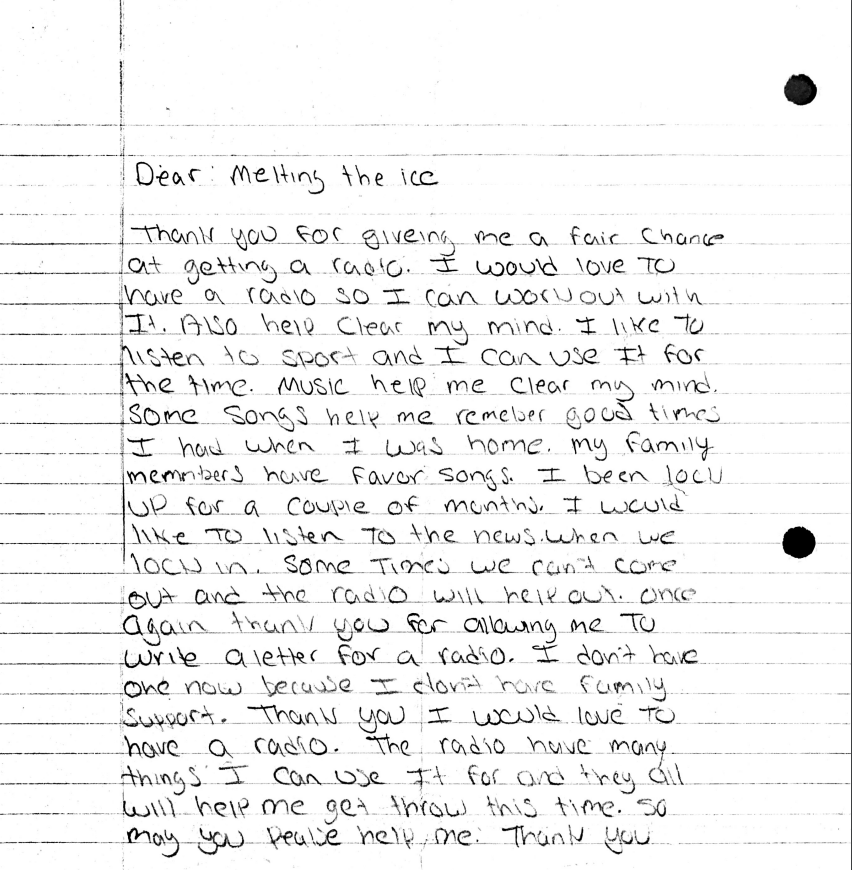 Dear: Melting the ice
Thank you for giveing me a fair chance
at getting a radio. I would love to
have a radio so I can work out with
It. Also help clear my mind. I like to
listen to sport and I can use It for
the time. Music help me clear my mind.
Some songs help me remeber good times
I had when I was home. my family
memnbers have favor songs. I been lock
up for a couple of months. I would
like to listen to the news. when we
lock in. Some times we can't come
out and the radio will help out. once
again thank you for allowing me to
write a letter for a radio. I don't have
one now because I don't have family
support. Thank you I would love to
have a radio. The radio have many
things I can use It for and they all
will help me get throw this time. so
may you pealse help me. Thank you